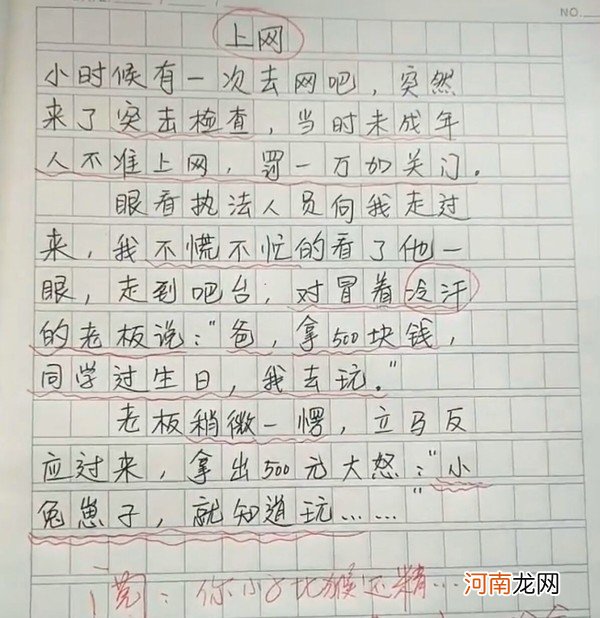 NO.
上网
小时候有一次去网吧，突然
来了突击检查，当时未成年
人不准上网，罚一万加关门。
眼看执法人员向我走过
来，我不慌不忙的看了他一
眼，走到吧台，对冒着冷汗
的老板说："爸，拿500块钱，
同学过生日，我去玩。"
老板稍微一愣，立马反
应过来，拿出500元大怒："小
兔崽子，就知道玩……"
：你小子比猴还精…
河南龙网